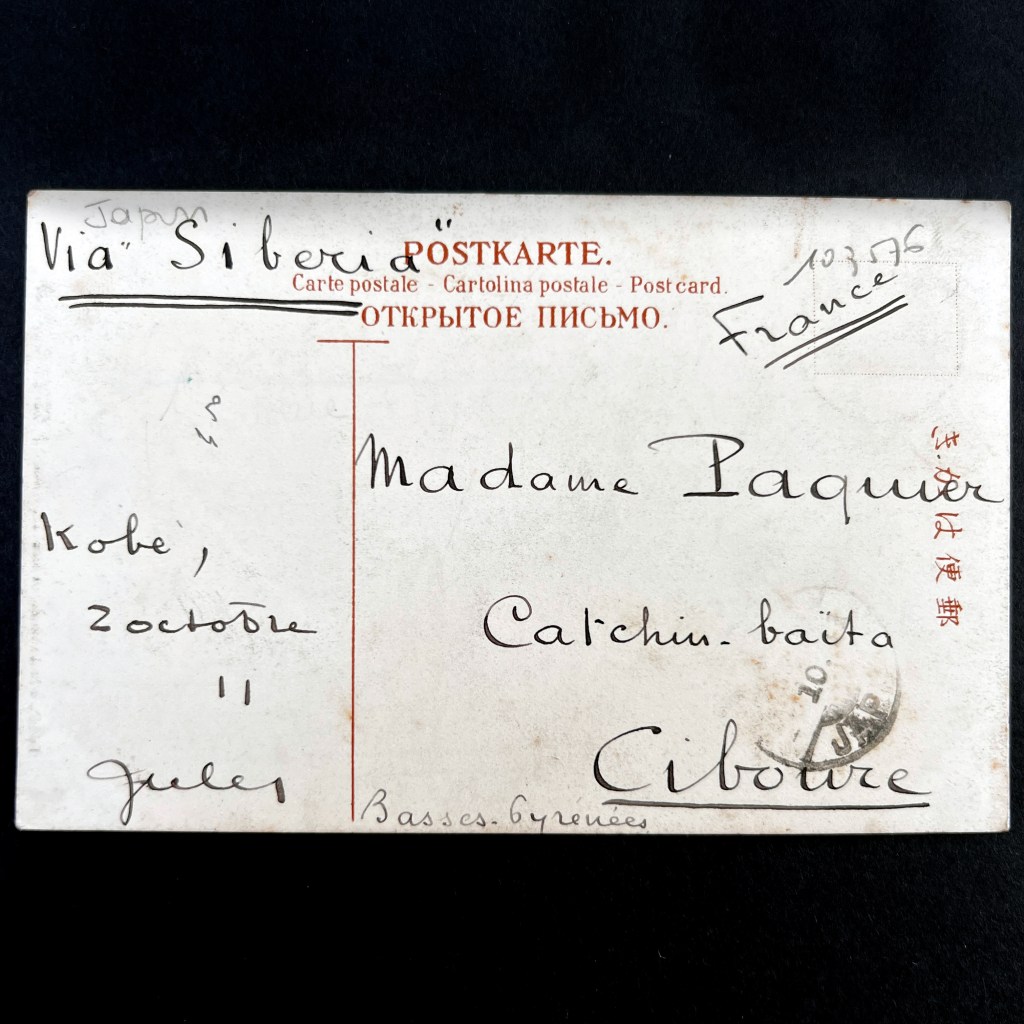 Japon
Via "Siberia"
POSTKARTE.
Carte postale - Cartolina postale - Post card.
ОТКРЫТОЕ ПИСЬМО.
103576
France
きかは便郵
Madame Paquier
Catchin-baïta
Ciboure
Basses-Pyrénées
Kobé,
2 octobre
11
Jules
10.
JAP